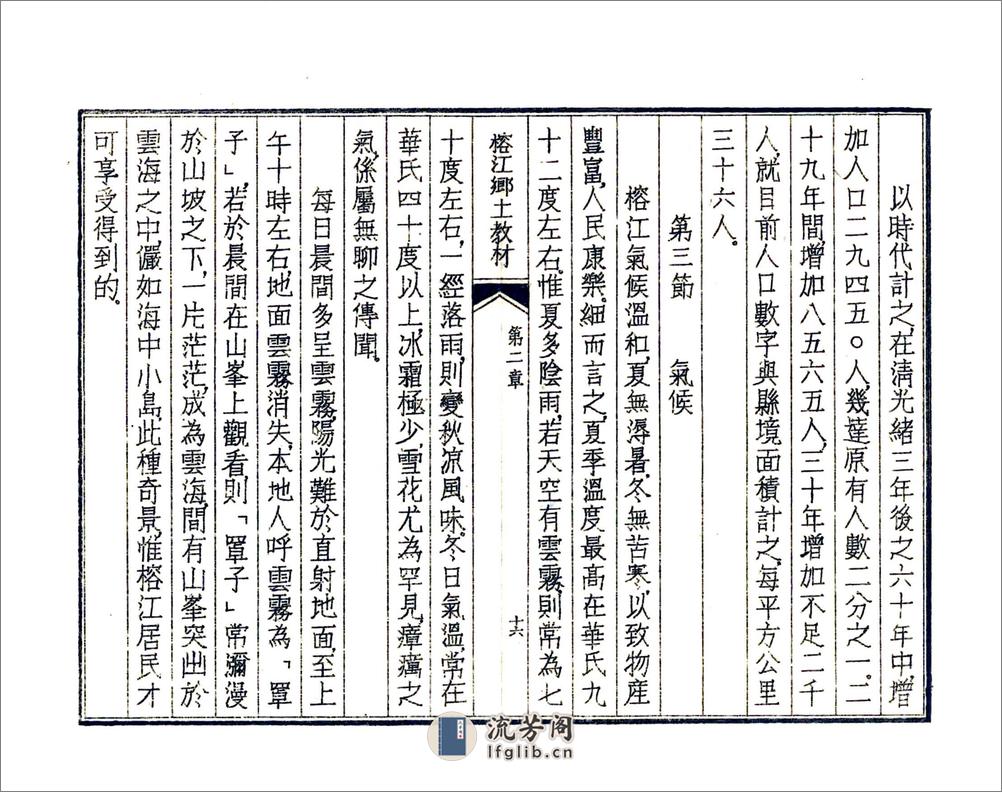 以時代計之，在清光緒三年後之六十年中，增
加人口二九四五〇人，幾達原有人數二分之一。二
十九年間，增加八五六五人，三十年增加不足二千
人，就目前人口數字與縣境面積計之，每平方公里
三十六人。
第三節　氣候
榕江氣候溫和，夏無溽暑，冬無苦寒，以致物産
豐富，人民康樂。細而言之，夏季溫度最高在華氏九
十二度左右。惟夏多陰雨，若天空有雲霧，則常為七
榕江鄉土教材　第二章　十六
十度左右，一經落雨，則變秋凉風味。冬日氣溫，常在
華氏四十度以上，冰霜極少，雪花尤為罕見，瘴癘之
氣，係屬無聊之傳聞。
每日晨間多呈雲霧，陽光難於直射地面，至上
午十時左右，地面雲霧消失，本地人呼雲霧為「罩
子」，若於晨間在山峯上觀看，則「罩子」常瀰漫
於山坡之下，一片茫茫，成為雲海，間有山峯突出於
雲海之中儼如海中小島，此種奇景，惟榕江居民才
可享受得到的。
流芳阁
lfglib.cn